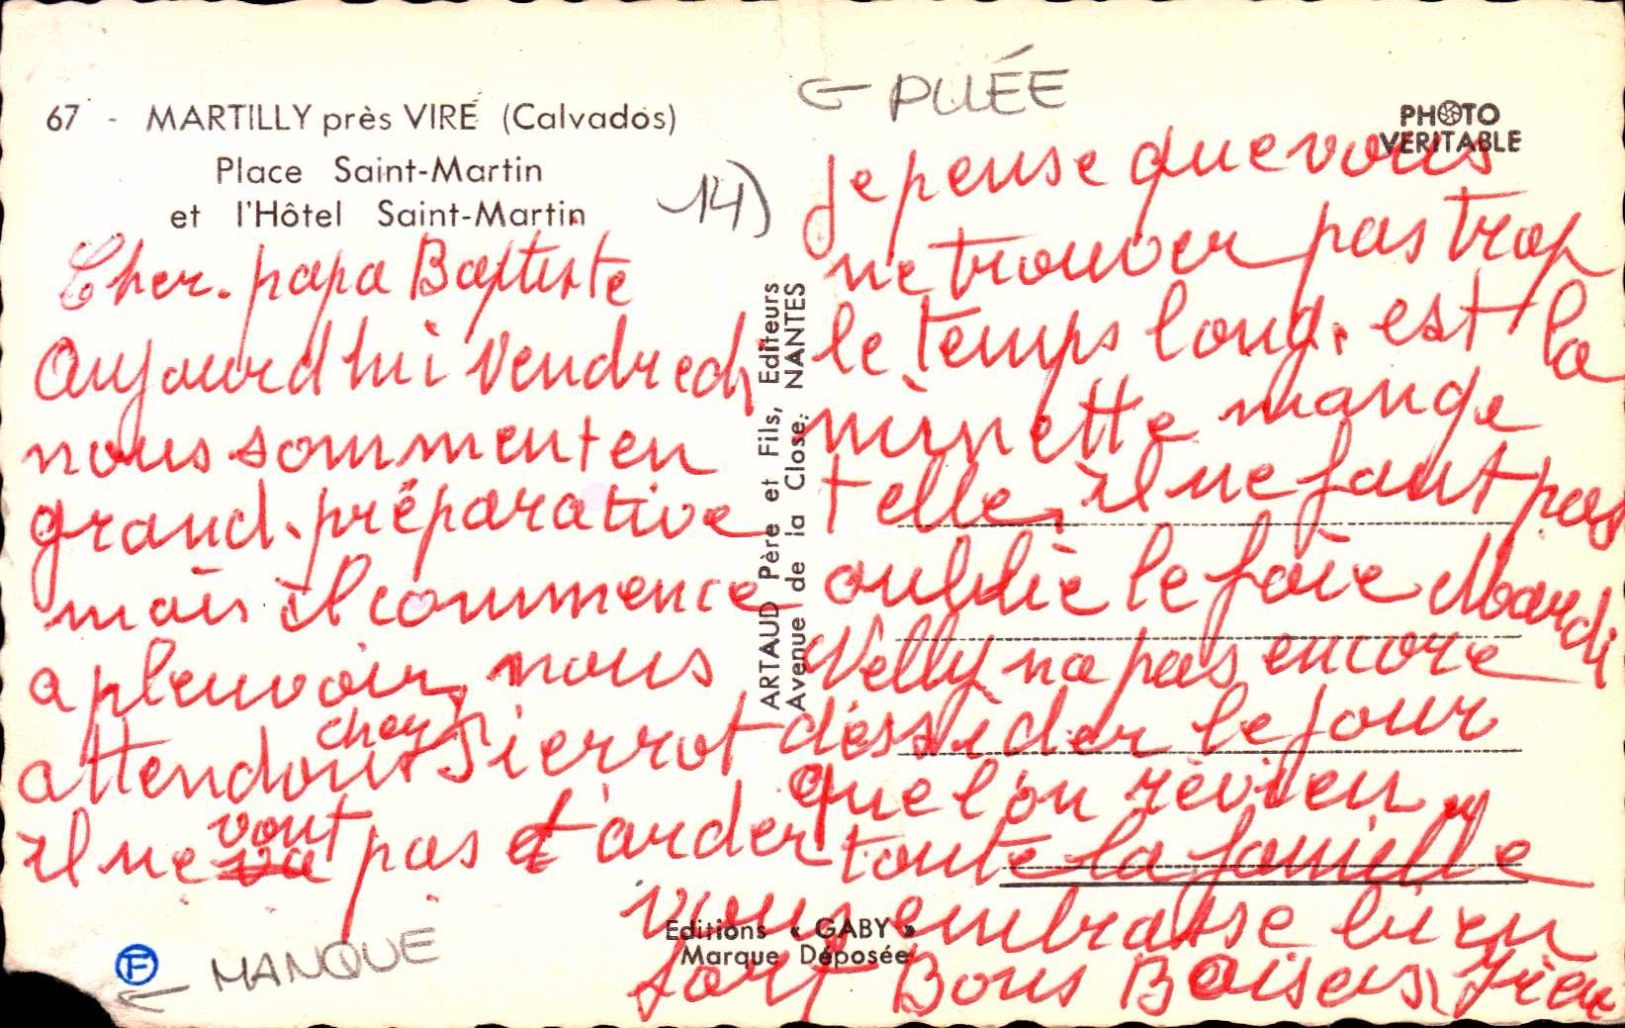 67 - MARTILLY près VIRE (Calvados)
Place Saint-Martin
et l'Hôtel Saint-Martin
14)
Cher. papa Baptiste
Aujourd hui Vendredi
nous somment en
grand. préparative
mais il commence
a pleuvoir, nous
attendons chez Pierrot
il ne va vont pas t'arder
← MANQUE
F
ARTAUD Père et Fils, Editeurs
Avenue de la Close. NANTES
← PLIÉE
PHOTO
VERITABLE
Je pense que vous
ne trouver pas trop
le temps long. est la
minette mange
t elle, il ne faut pas
oublié le foie Mardi
Nelly na pas encore
dessider le jour
que l'on révien
toute la famille
vous embrasse bien
fort Bons Baisers
Editions « GABY »
Marque Déposée